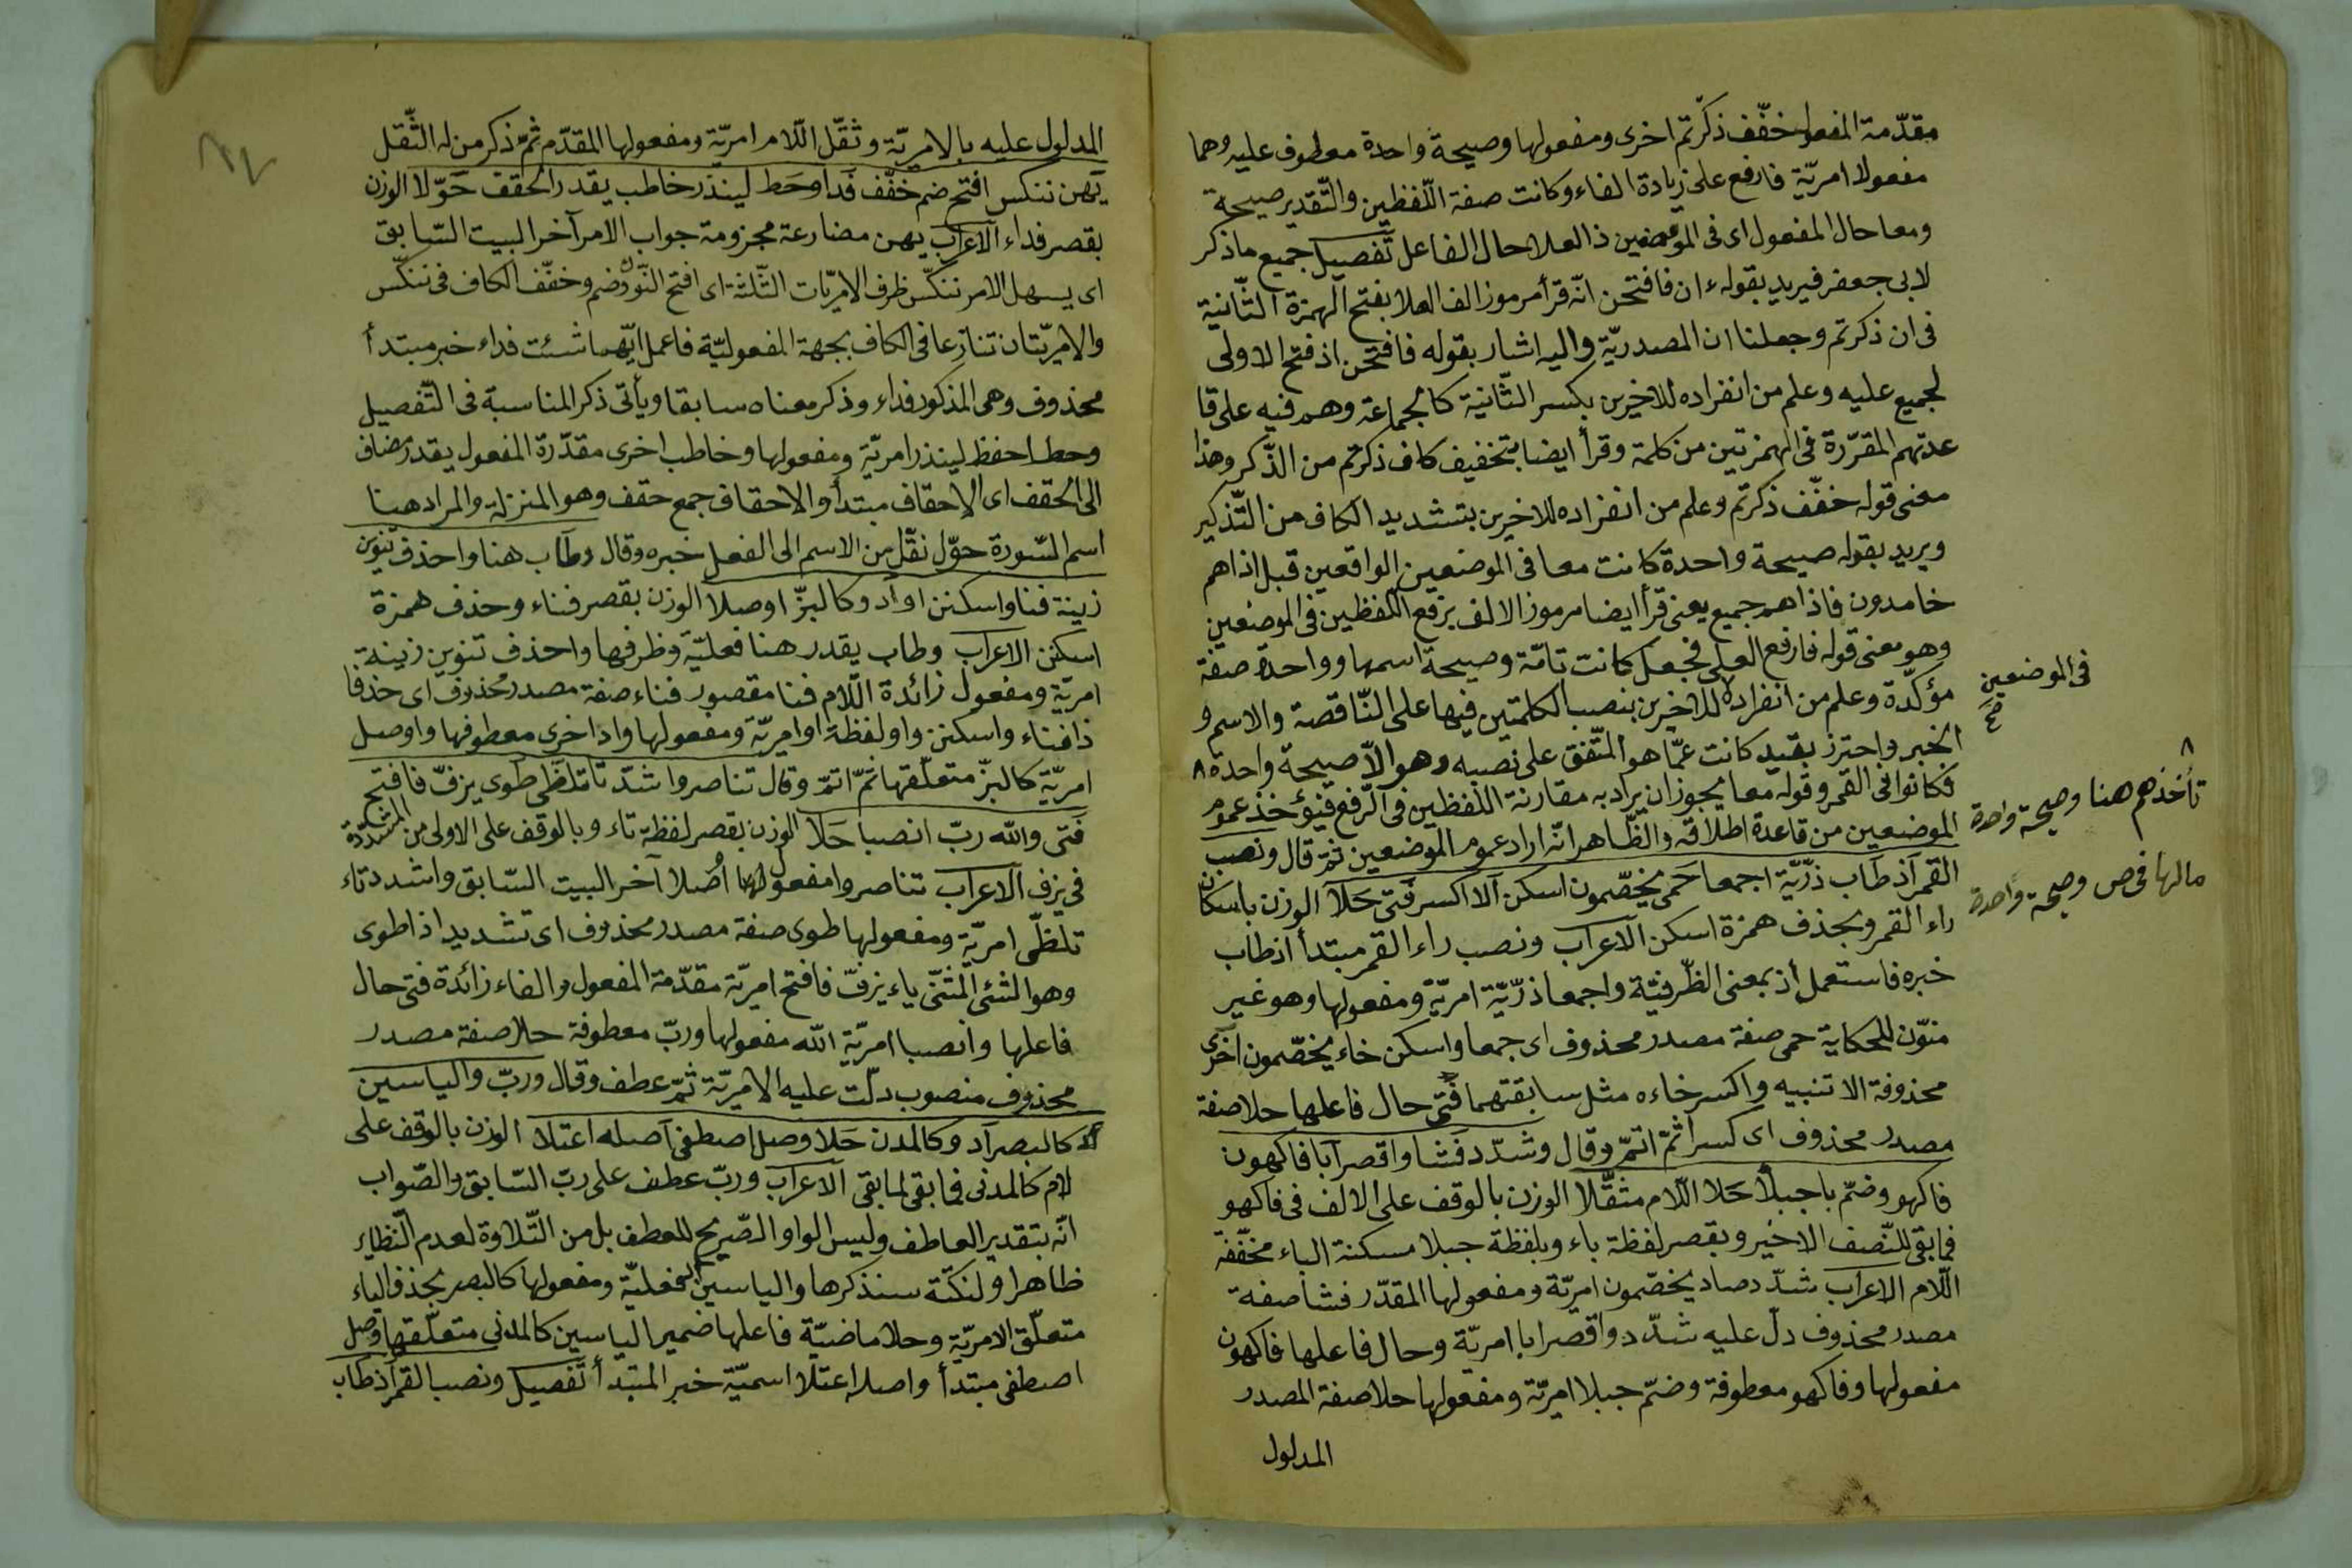 مقدّمة المفعول خفّف ذكّرتم اخرى ومفعولها وصيحة واحدة معطوف عليه وهما
مفعولا امريّة فارفع على زيادة الفاء وكانت صفة اللّفظين والتّقدير صيحة
ومعا حال المفعول اى فى الموضعين ذا العلا حال الفاعل تفصيل جميع ما ذكر
لابى جعفر فيريد بقوله ءان فافتحن انّه قرأ مرموز الف العلا بفتح الهمزة الثّانية
فى ان ذكرتم وجعلنا ان المصدريّة واليه اشار بقوله فافتحن اذ فتح الاولى
لجميع عليه وعلم من انفراده للاخيرين بكسر الثّانية كالجماعة وهم فيه على قا
عدتهم المقرّرة فى الهمزتين من كلمة وقرأ ايضا بتخفيف كاف ذكرتم من الذّكر وهذا
معنى قوله خفّف ذكرتم وعلم من انفراده للاخيرين بتشديد الكاف من التّذكير
ويريد بقوله صيحة واحدة كانت معا فى الموضعين الواقعين قبل اذا هم
خامدون فاذا هم جميع يعنى قرأ ايضا مرموز الالف برفع اللّفظين فى الموضعين
وهو معنى قوله فارفع العلى فجعل كانت تامّة وصيحة اسمها وواحدة صفة
مؤكّدة وعلم من انفراده للاخيرين بنصب الكلمتين فيها على النّاقصة والاسم و
الخبر واحترز بقيد كانت عمّا هو المتّفق على نصبه وهو الاّ صيحة واحدة ٨
فكانوا فى القمر وقوله معا يجوز ان يراد به مقارنة اللّفظين فى الرّفع خذ عموم
الموضعين من قاعدة اطلاقه والظّاهر انّه اراد عموم الموضعين ثمّ قال ونصب
القمر آذ طاب ذرّيّة اجمعا حمى يخصّمون اسكن آلا اكسر فتى حلا الوزن باسكان
راء القمر وبحذف همزة اسكن الاعراب ونصب راء القمر مبتدأ اذ طاب
خبره فاستعمل اذ بمعنى الظّرفيّة واجمعا ذرّيّة امريّة ومفعولها وهو غير
منوّن للحكاية حمى صفة مصدر محذوف اى جمعا واسكن خاء يخصّمون اخرى
محذوفة الا تنبيه واكسر خاءه مثل سابقتهما فتى حال فاعلها حلا صفة
مصدر محذوف اى كسرا ثمّ اتمّ وقال وشدّد فشا واقصر آبا فاكهون
فاكهو وضمّ با جبلا حلا اللّام مثقّلا الوزن بالوقف على الالف فى فاكهو
فما بقى للنّصف الاخير وبقصر لفظة باء وبلفظة جبلا مسكنة الباء مخفّفة
اللّام الاعراب شدّد صاد يخصّمون امريّة ومفعولها المقدّر فشا صفة
مصدر محذوف دلّ عليه شدّد واقصر ابا امريّة وحال فاعلها فاكهون
مفعولها وفاكهو معطوفة وضمّ جبلا امريّة ومفعولها حلا صفة المصدر
المدلول
فى الموضعين
صح
٨
تأخذهم هنا وصيحة واحدة
مالها فى ص وصيحة واحدة
٨٧
المدلول عليه بالامريّة وثقّل اللّام امريّة ومفعولها المقدّم ثمّ ذكر من له الثّقل
يهن ننكس افتح ضم خفّف فدا وحط لينذر خاطب يقدر الحقف حوّلا الوزن
بقصر فداء الاعراب يهن مضارعة مجزومة جواب الامر آخر البيت السّابق
اى يسهل الامر ننكّس ظرف الامريّات الثّلثة اى افتح النّون وضم وخفّف الكاف فى ننكّس
والامريّتان تنازعا فى الكاف بجهة المفعوليّة فاعمل ايّهما شئت فداء خبر مبتدأ
محذوف وهى المذكور فداء وذكر معناه سابقا ويأتى ذكر المناسبة فى التّفصيل
وحط احفظ لينذر امريّة ومفعولها وخاطب اخرى مقدّرة المفعول يقدر مضاف
الى الحقف اى الاحقاف مبتدأ والاحقاف جمع حقف وهو المنزلة والمراد هنا
اسم السّورة حوّل نقّل من الاسم الى الفعل خبره وقال وطاب هنا واحذف تنوين
زينة فنا واسكنن او اد وكالبزّ اوصلا الوزن بقصر فناء وحذف همزة
اسكنن الاعراب وطاب يقدر هنا فعليّة وظرفها واحذف تنوين زينة
امريّة ومفعول زائدة اللّام فنا مقصور فناء صفة مصدر محذوف اى حذفا
ذا فناء واسكنن واو لفظة او امريّة ومفعولها واد اخرى معطوفها واوصل
امريّة كالبزّ متعلّقها ثمّ اتمّ وقال تناصروا اشدد تا تلظّى طوى يزفّ فافتح
فتى والله ربّ انصبا حلا الوزن بقصر لفظة تاء وبالوقف على الاولى من المشدّدة
فى يزف الاعراب تناصروا مفعول لها اصلا آخر البيت السّابق واشدد تاء
تلظّى امريّة ومفعولها طوى صفة مصدر محذوف اى تشديدا ذا طوى
وهو الشئ المثنّى ياء يزفّ فافتح امريّة مقدّمة المفعول والفاء زائدة فتى حال
فاعلها وانصبا امريّة الله مفعولها وربّ معطوفة حلا صفة مصدر
محذوف منصوب دلّت عليه الامريّة ثمّ عطف وقال وربّ والياسين
كالبصر آد وكالمدن حلا وصل اصطفى آصله اعتلا الوزن بالوقف على
لام كالمدنى فما بقى لما بقى الاعراب وربّ عطف على ربّ السّابق والصّواب
انّه بتقدير العاطف وليس الواو الصّريح للعطف بل من التّلاوة لعدم النّظاير
ظاهرا ولنكتة سنذكرها والياسين فعليّة ومفعولها كالبصر بحذف الياء
متعلّق الامريّة وحلا ماضيّة فاعلها ضمير الياسين كالمدنى متعلّقها وصل
اصطفى مبتدأ واصله اعتلا اسميّة خبر المبتدأ تفصيل ونصب القمر آذ طاب